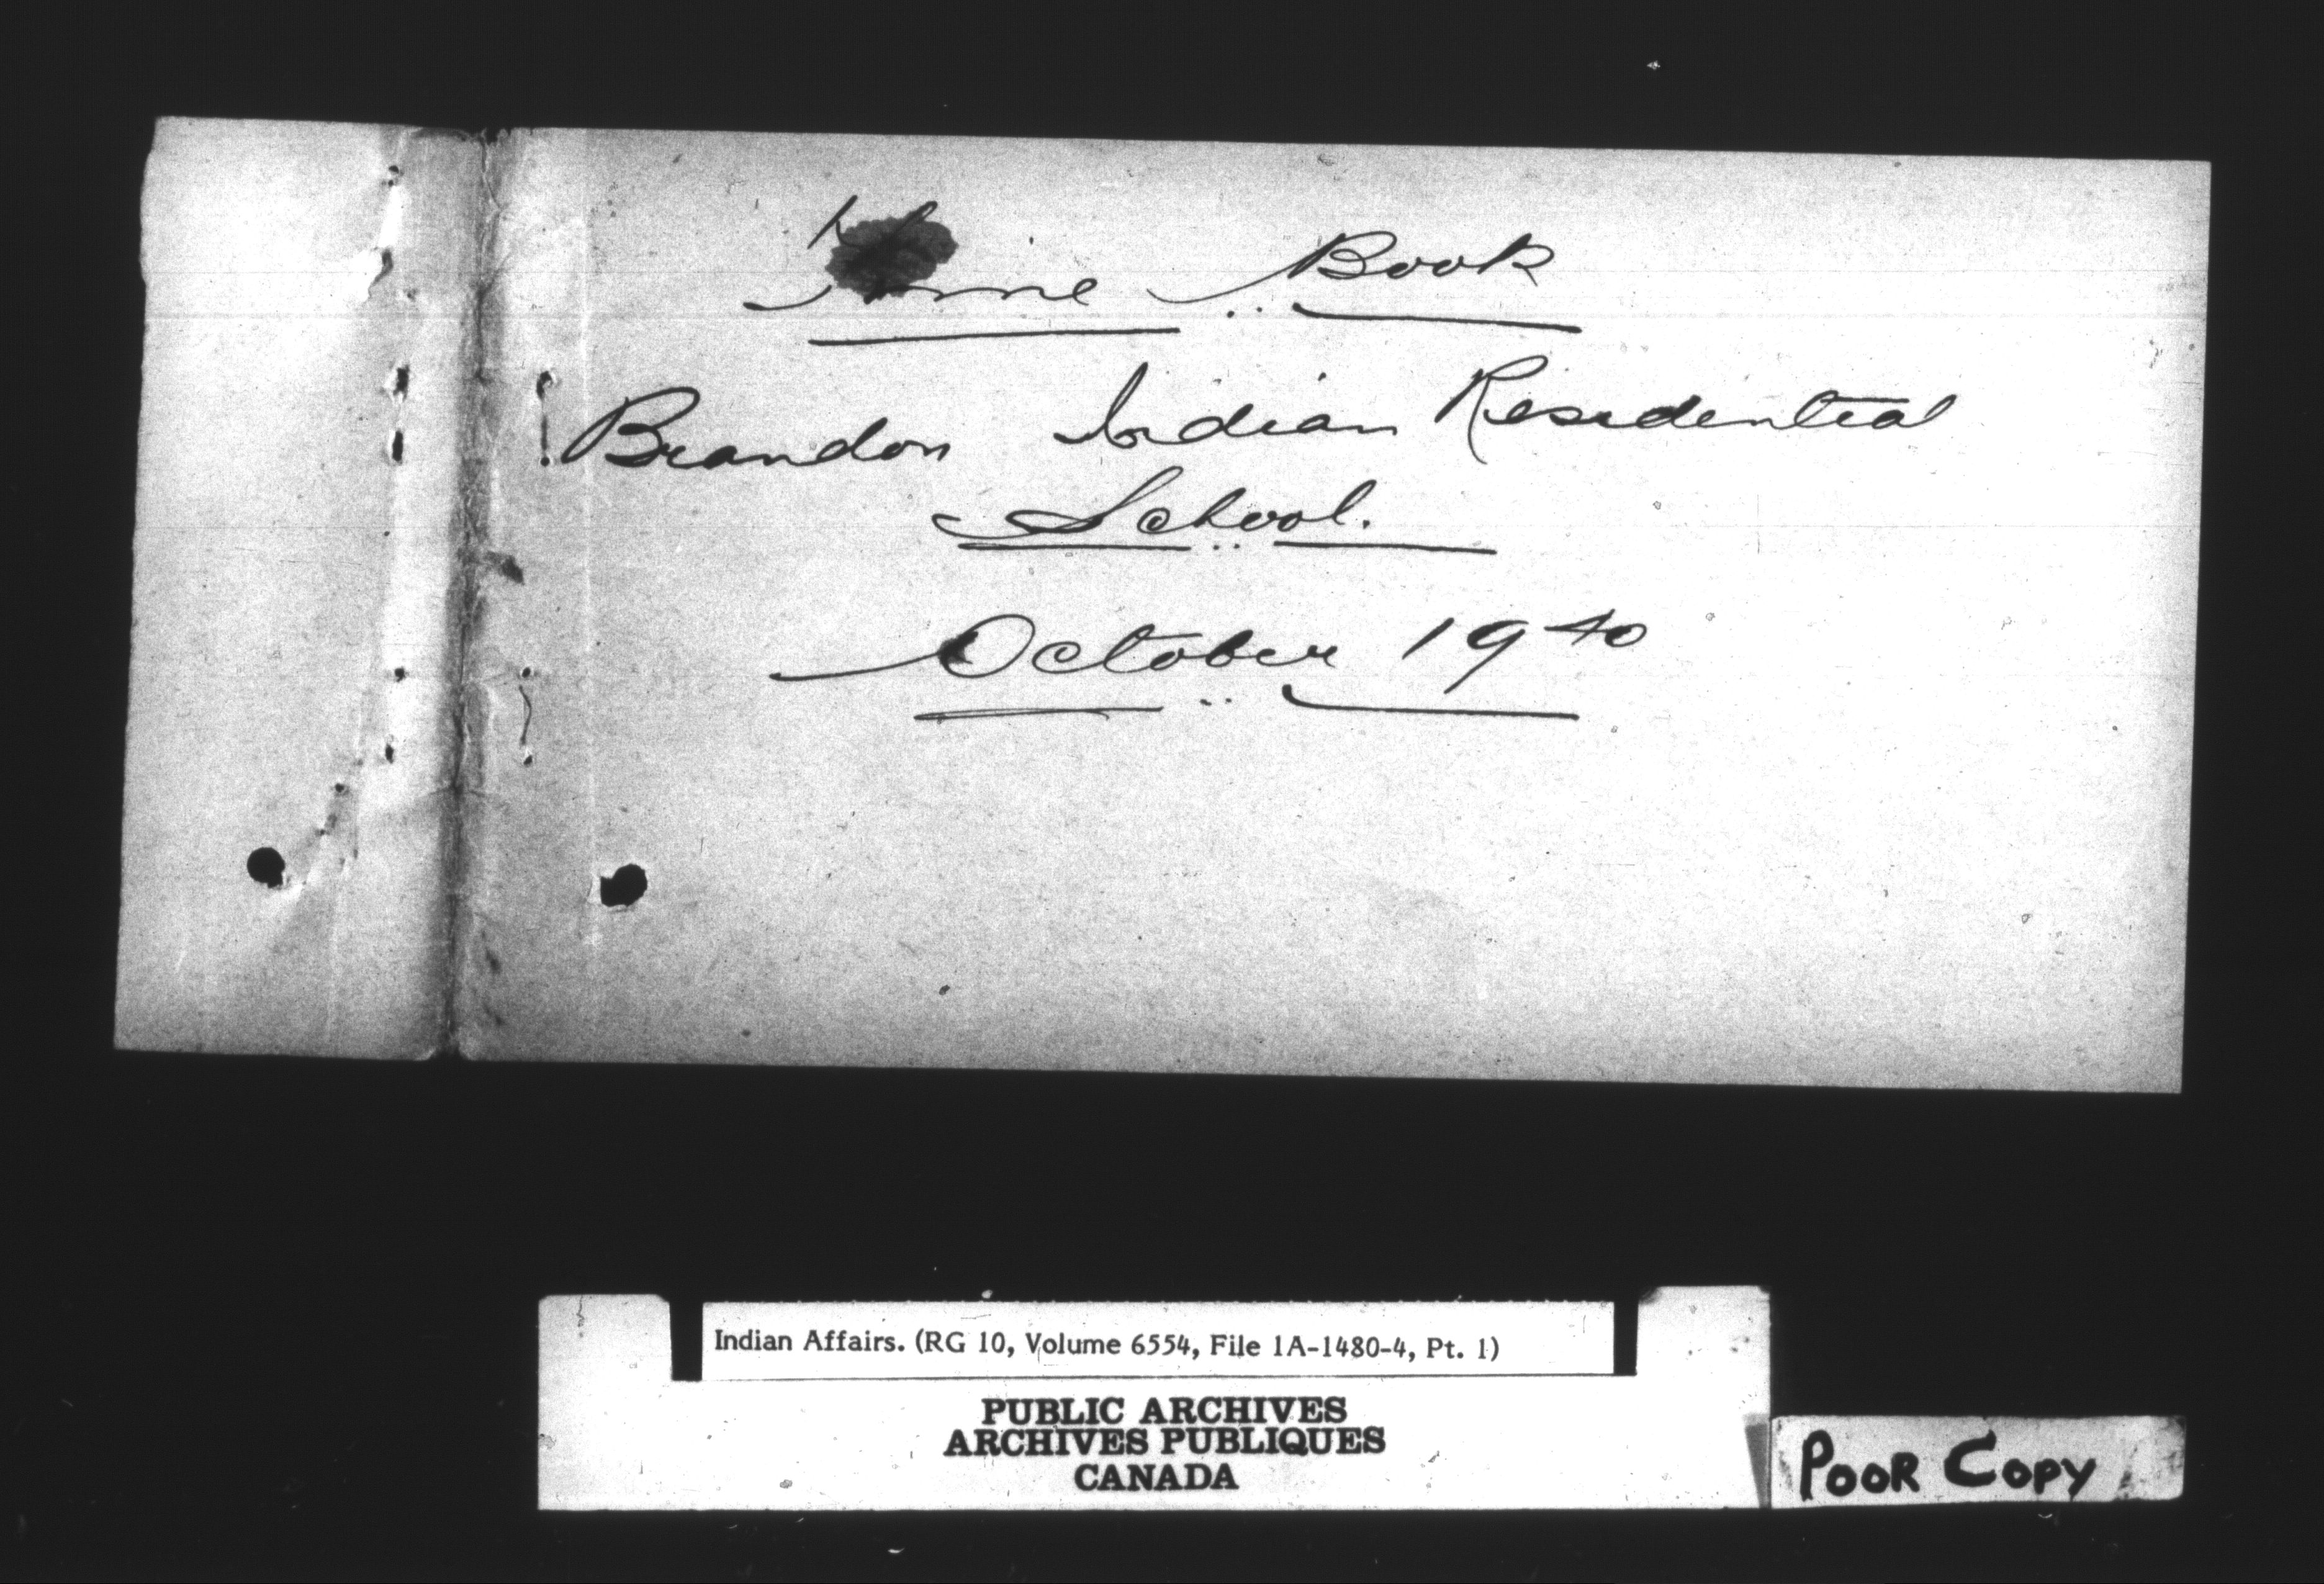 Book
Brandon Indian Residential
School.
October 1940
Indian Affairs. (RG 10, Volume 6554, File 1A-1480-4, Pt. 1)
PUBLIC ARCHIVES
ARCHIVES PUBLIQUES
CANADA
POOR COPY